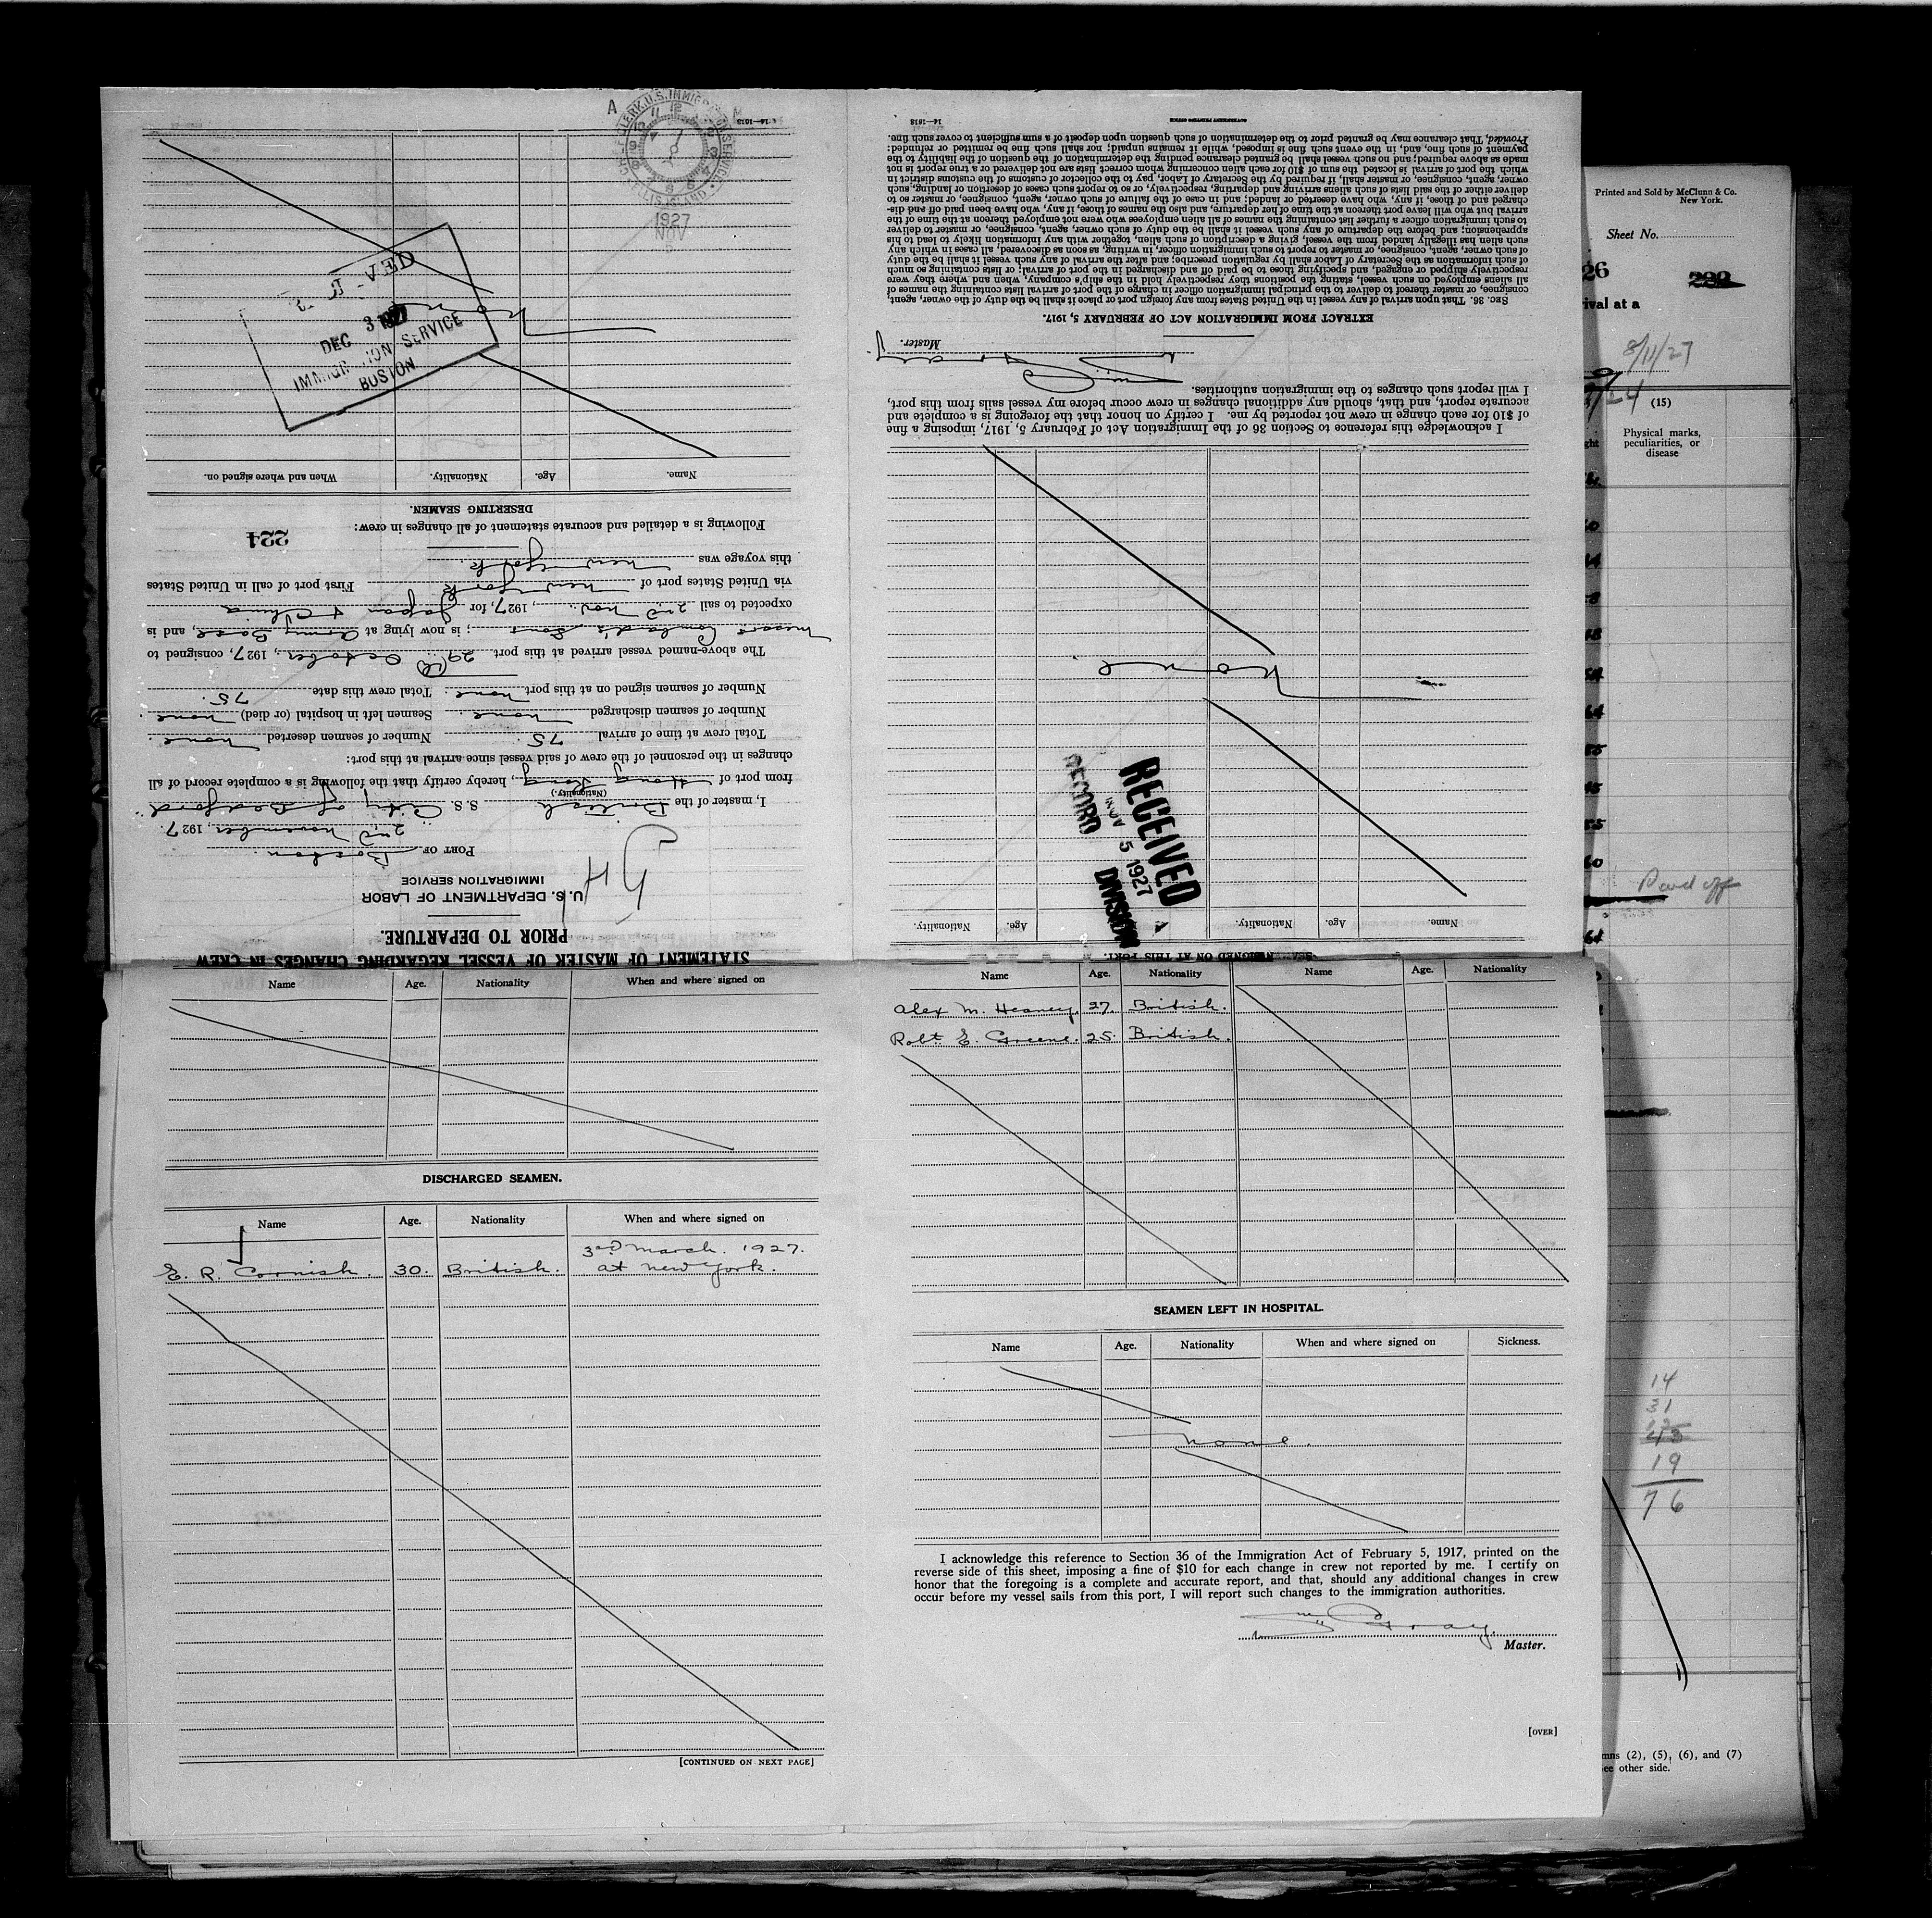 STATEMENT OF MASTER OF VESSEL REGARDING CHANGES IN CREW
PRIOR TO DEPARTURE.
U. S. DEPARTMENT OF LABOR
IMMIGRATION SERVICE
PORT OF Boston.
2nd November, 1927.
I, master of the British S. S. City of Bedford
(Nationality.)
from port of Hong Kong, hereby certify that the following is a complete record of all
changes in the personnel of the crew of said vessel since arrival at this port:
Total crew at time of arrival 75. Number of seamen deserted none.
Number of seamen discharged none. Seamen left in hospital (or died) none.
Number of seamen signed on at this port none. Total crew this date 75.
The above-named vessel arrived at this port 29th October, 1927, consigned to
; is now lying at Army Base, and is
expected to sail 2nd Nov., 1927, for Japan & China
via United States port of New York First port of call in United States
this voyage was New York.
Following is a detailed and accurate statement of all changes in crew:
224
DESERTING SEAMEN.
Name. Age. Nationality. When and where signed on.
DEC 3 1927
IMMIGRATION SERVICE
BOSTON
14—1618
1927
NOV
SIGNED ON AT THIS PORT.
Name. Age. Nationality. Name. Age. Nationality.
RECEIVED
NOV 5 1927
RECORD DIVISION
None.
I acknowledge this reference to Section 36 of the Immigration Act of February 5, 1917, imposing a fine
of $10 for each change in crew not reported by me. I certify on honor that the foregoing is a complete and
accurate report, and that, should any additional changes in crew occur before my vessel sails from this port,
I will report such changes to the immigration authorities.
Master.
EXTRACT FROM IMMIGRATION ACT OF FEBRUARY 5, 1917.
Sec. 36. That upon arrival of any vessel in the United States from any foreign port or place it shall be the duty of the owner, agent,
consignee, or master thereof to deliver to the principal immigration officer in charge of the port of arrival lists containing the names of
all aliens employed on such vessel, stating the positions they respectively hold in the ship's company, when and where they were
respectively shipped or engaged, and specifying those to be paid off and discharged in the port of arrival; or lists containing so much
of such information as the Secretary of Labor shall by regulation prescribe; and after the arrival of any such vessel it shall be the duty
of such owner, agent, consignee, or master to report to such immigration officer, in writing, as soon as discovered, all cases in which any
such alien has illegally landed from the vessel, giving a description of such alien, together with any information likely to lead to his
apprehension; and before the departure of any such vessel it shall be the duty of such owner, agent, consignee, or master to deliver
to such immigration officer a further list containing the names of all alien employees who were not employed thereon at the time of the
arrival but who will leave port thereon at the time of her departure, and also the names of those, if any, who have been paid off and dis-
charged and of those, if any, who have deserted or landed; and in case of the failure of such owner, agent, consignee, or master so to
deliver either of the said lists of such aliens arriving and departing, respectively, or so to report such cases of desertion or landing, such
owner, agent, consignee, or master shall, if required by the Secretary of Labor, pay to the collector of customs of the customs district in
which the port of arrival is located the sum of $10 for each alien concerning whom correct lists are not delivered or a true report is not
made as above required; and no such vessel shall be granted clearance pending the determination of the question of the liability to the
payment of such fine, and, in the event such fine is imposed, while it remains unpaid; nor shall such fine be remitted or refunded:
Provided, That clearance may be granted prior to the determination of such question upon deposit of a sum sufficient to cover such fine.
14—1618 GOVERNMENT PRINTING OFFICE
Name Age. Nationality When and where signed on
DISCHARGED SEAMEN.
Name Age. Nationality When and where signed on
3rd March. 1927.
E. R. Cornish. 30. British. at New York.
[CONTINUED ON NEXT PAGE]
Name Age. Nationality Name Age. Nationality
Alex M. Heaney. 27. British.
Robt E. Greene. 25. British.
SEAMEN LEFT IN HOSPITAL.
Name Age. Nationality When and where signed on Sickness.
None.
I acknowledge this reference to Section 36 of the Immigration Act of February 5, 1917, printed on the
reverse side of this sheet, imposing a fine of $10 for each change in crew not reported by me. I certify on
honor that the foregoing is a complete and accurate report, and that, should any additional changes in crew
occur before my vessel sails from this port, I will report such changes to the immigration authorities.
Gray.
Master.
[OVER]
Printed and Sold by McClunn & Co.
New York.
Sheet No.
26
ival at a
8/11/27
(15)
Physical marks,
peculiarities, or
disease
Paid off
14
31
43
19
76
mns (2), (5), (6), and (7)
ee other side.